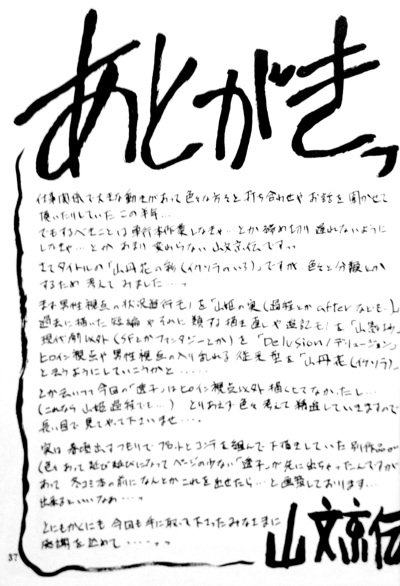 あとがきっ
仕事関係で大きな動きがあって色々な方々と打ち合わせやお話を聞かせて
頂いたりしていたこの半年…
でもするべきことは単行本作業しなきゃ…とか締め切り遅れないように
しなきゃ…とかあまり変わらない山文京伝ですっ
さてタイトルの「山丹花の彩(イクリラのいろ)」ですが 色々と分散しか
するため考えてみました…っ
まず男性視点の状況遊行モノを「山姫の実(過程とかafterなしも)」
過去に描いた短編やそれに類する描き直しや追記モノを
現代劇以外(SFとかファンタジーとか)を「Delusion/デリュージョン」
ヒロイン視点や男性視点の入り乱れる従来型を「山丹花(イクリラ)」
と云うようにしていこうかと……
とか云いつつ今回の「逸子」はヒロイン視点以外描いてなかったし…
(これなら山姫過程でも…) とりあえず色々考えて精進していきますので
長い目で見てやって下さいませ…
実は春先出すつもりでプロットとコンテを組んで下描きしていた別作品が
(色々あって延び延びになってページの少ない「逸子」が先に出ちゃったんですが
あって 冬コミ本の前になんとかこれを出せたら…と画策しております…
出来るといいなぁ…っ
とにもかくにも 今回も手に取って下さったみなさまに
感謝を込めて……っっ
山文京伝
37